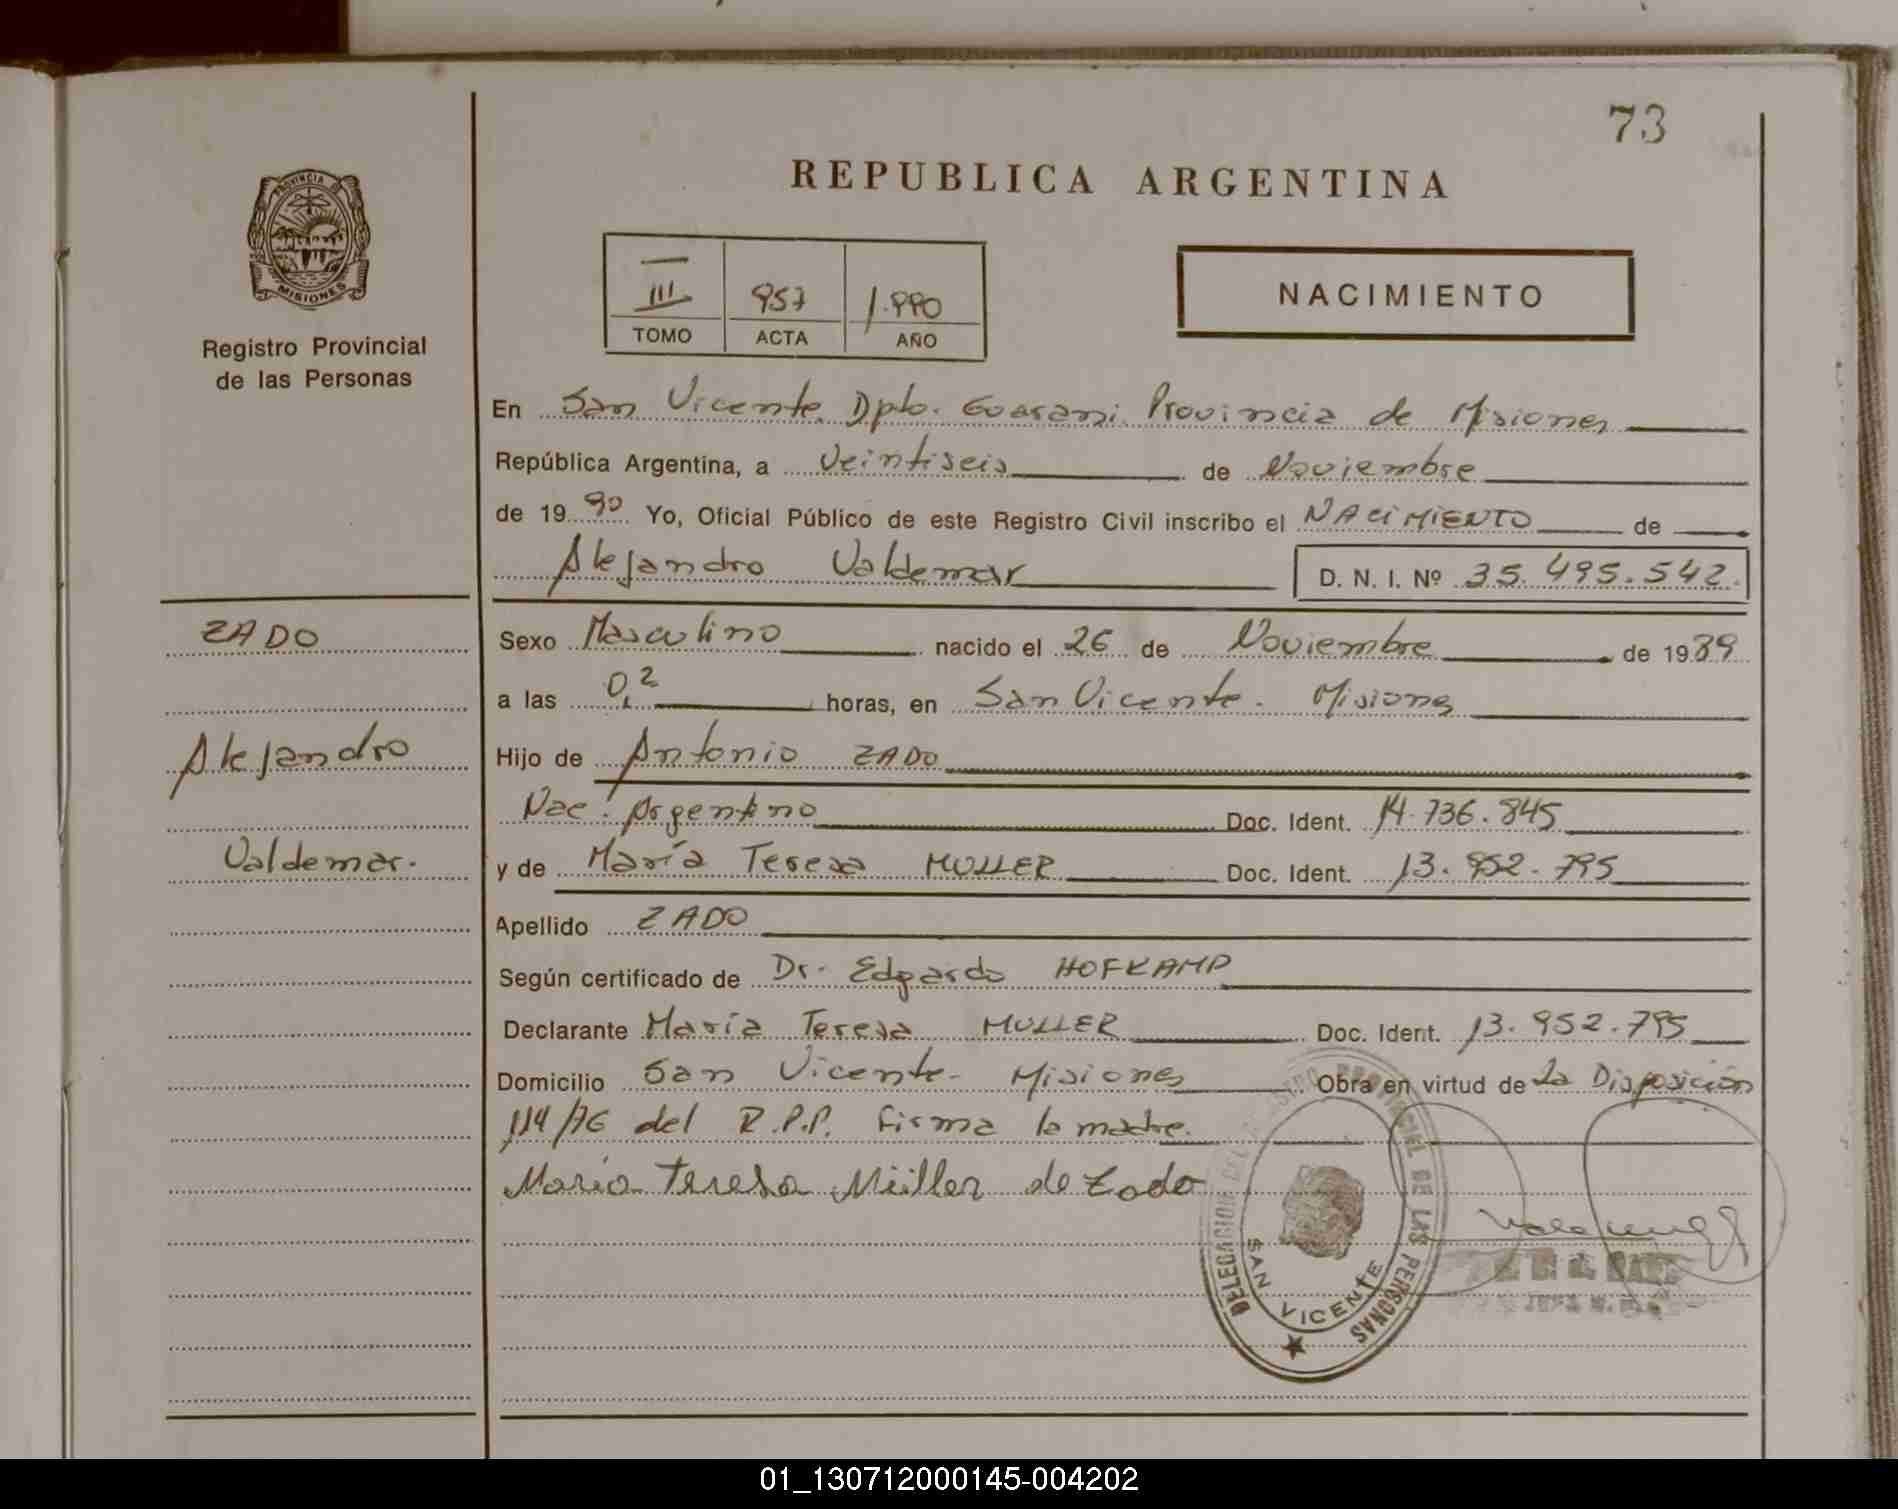 73
REPUBLICA ARGENTINA
PROVINCIA DE
MISIONES
Registro Provincial
de las Personas
III 957 1.990
TOMO ACTA AÑO
NACIMIENTO
En San Vicente Dpto. Guarani Provincia de Misiones
República Argentina, a Veintiseis de Noviembre
de 19 90 Yo, Oficial Público de este Registro Civil inscribo el NACIMIENTO de
Alejandro Valdemar D. N. I. Nº 35.495.542.
ZADO
Alejandro
Valdemar.
Sexo Masculino nacido el 26 de Noviembre de 1989
a las 02 horas, en San Vicente - Misiones
Hijo de Antonio ZADO
Nac. Argentino Doc. Ident. 14.736.845
y de María Teresa MULLER Doc. Ident. 13.952.795
Apellido ZADO
Según certificado de Dr. Edgardo HOFKAMP
Declarante María Teresa MULLER Doc. Ident. 13.952.795
Domicilio San Vicente - Misiones Obra en virtud de La Disposición
114/76 del R.P.P. firma la madre.
Maria Teresa Müller de Zado
DELEGACION DEL REGISTRO PROVINCIAL DE LAS PERSONAS
SAN VICENTE
01_130712000145-004202